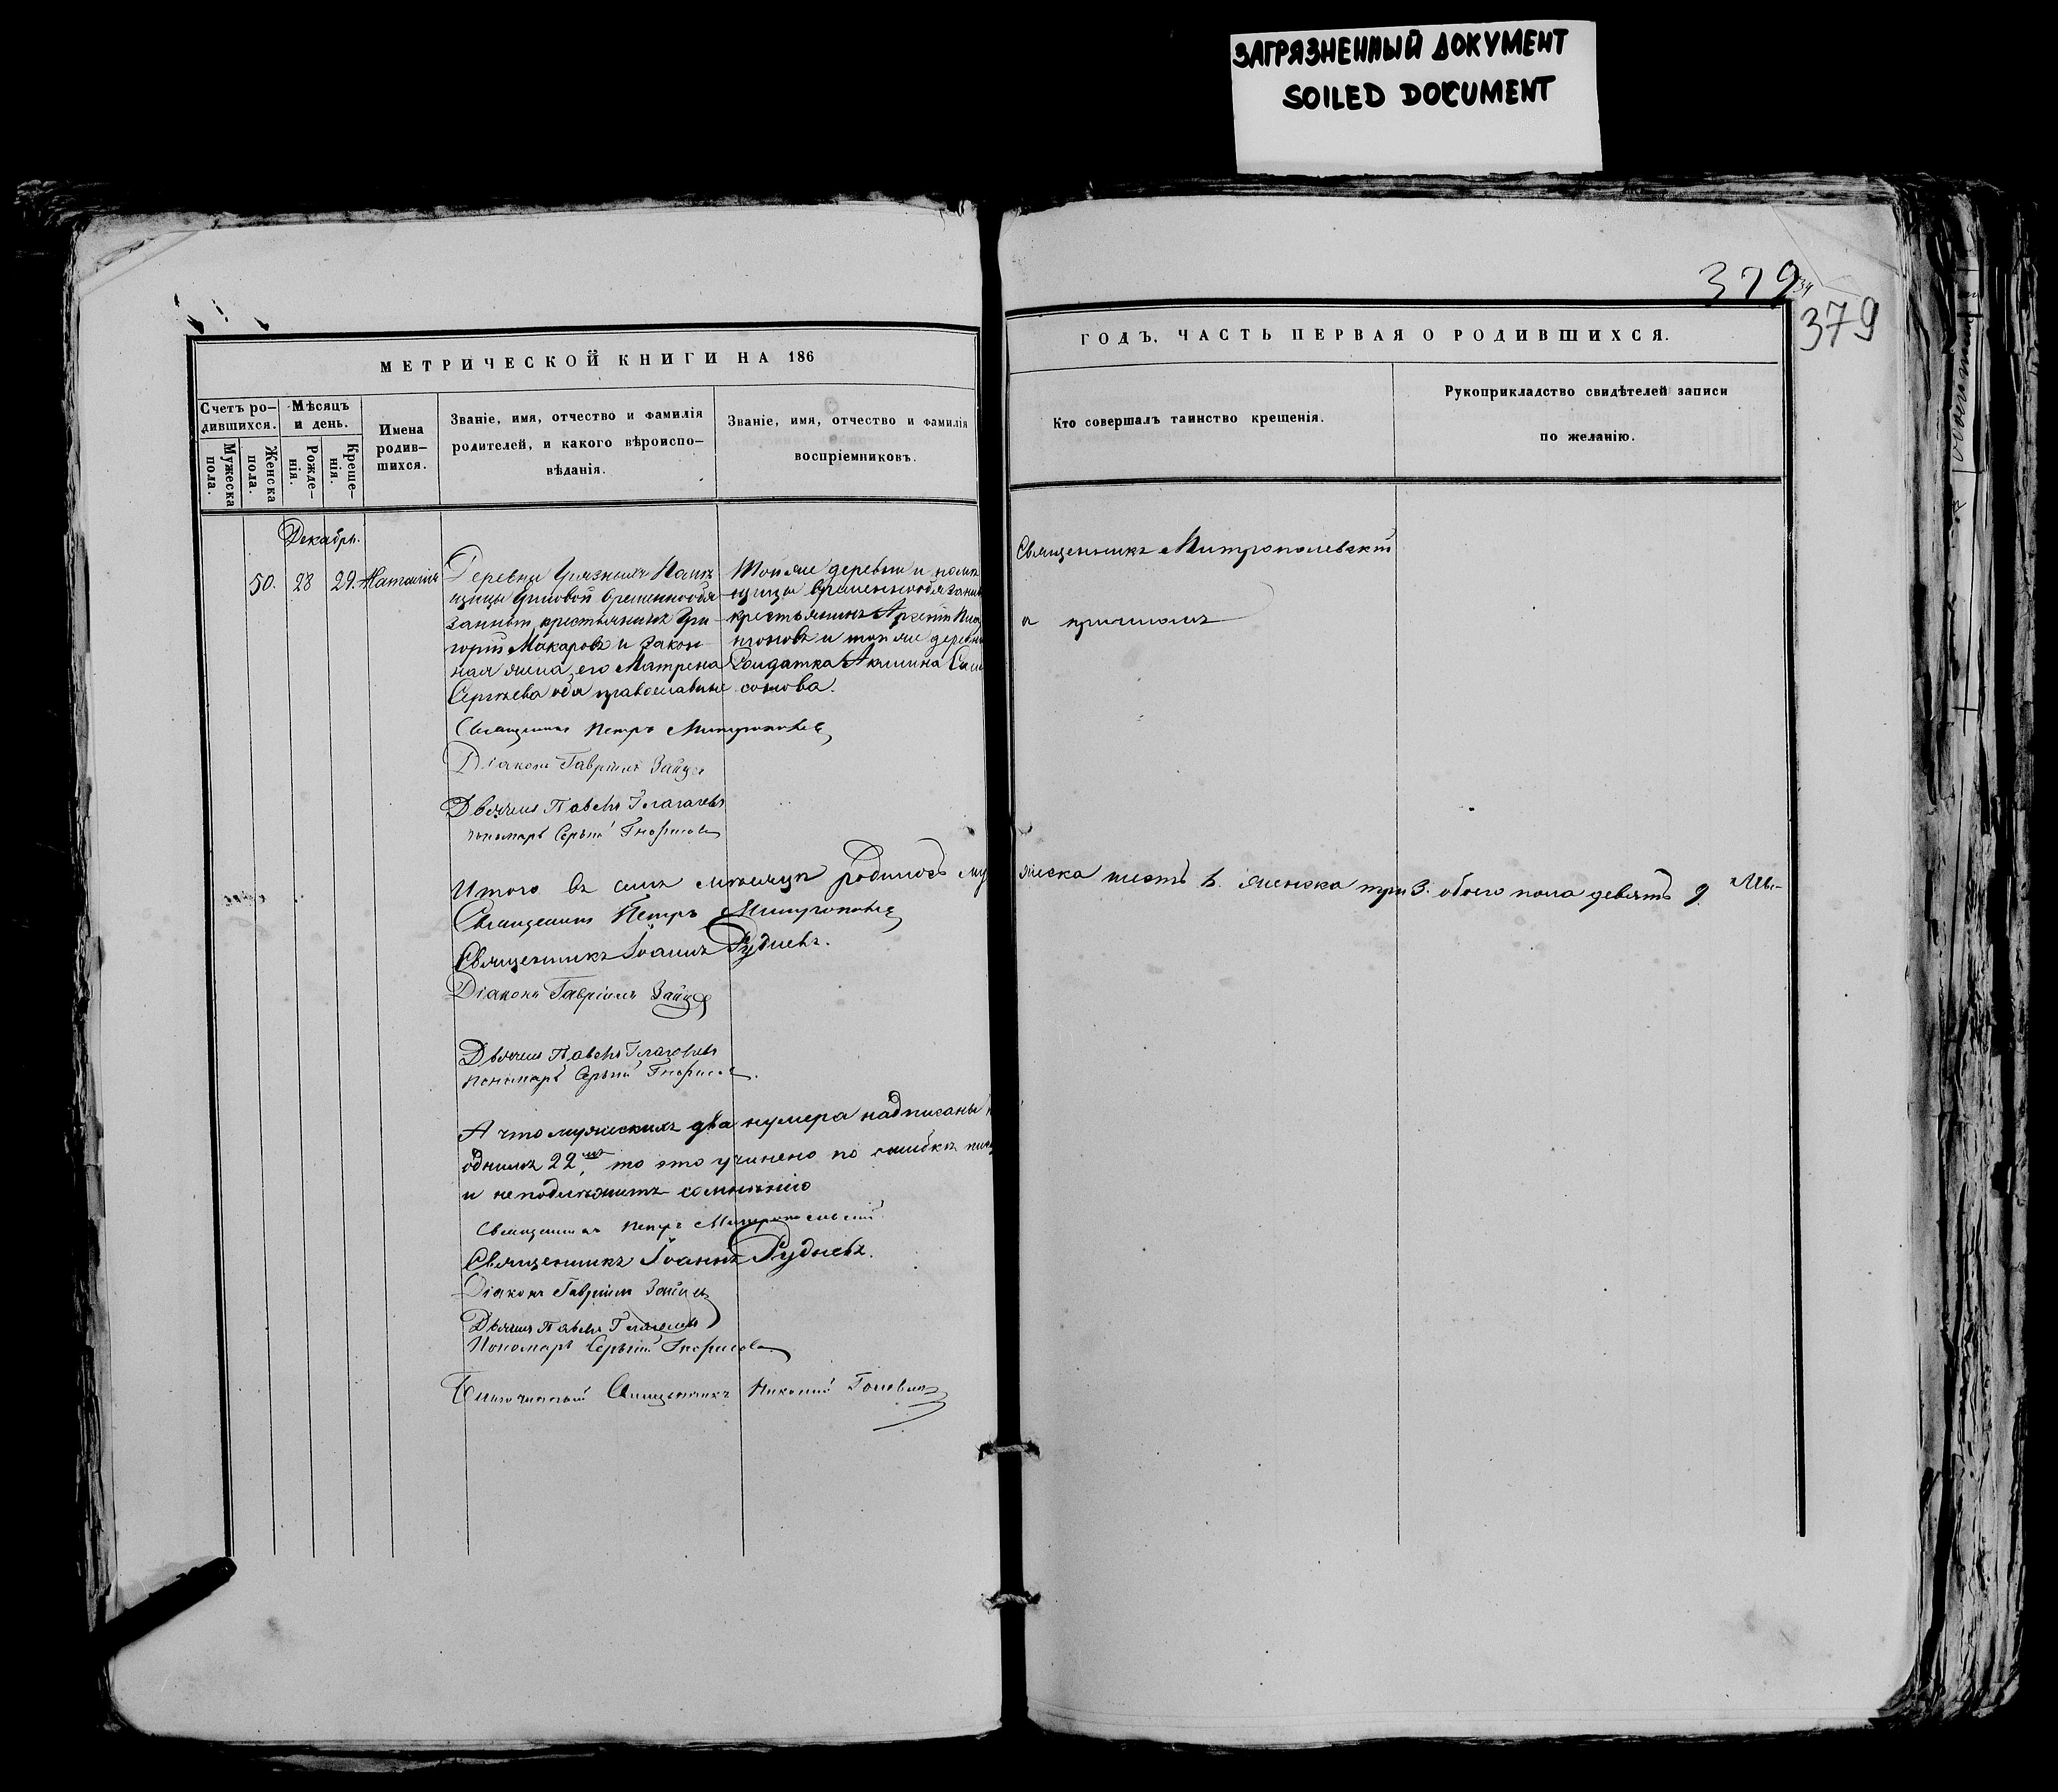 ЗАГРЯЗНЕННЫЙ ДОКУМЕНТ
SOILED DOCUMENT
379
379
МЕТРИЧЕСКОЙ КНИГИ НА 186
Счетъ ро-
дившихся.
Мужеска
пола.
Женска
пола.
Мѣсяцъ
и день.
Рожде-
нія.
Креще-
нія.
Имена
родив-
шихся.
Званіе, имя, отчество и фамилія
родителей, и какого вѣроиспо-
вѣданія.
Званіе, имя, отчество и фамилія
воспріемниковъ.
ГОДЪ, ЧАСТЬ ПЕРВАЯ О РОДИВШИХСЯ.
Кто совершалъ таинство крещенія.
Рукоприкладство свидѣтелей записи
по желанію.
Декабрь.
50. 28 29.
Деревни
временнообя
занный крестьянинъ Гри
горій Макаровъ и закон
ная жена его Матрена
Сергѣева оба православные
Той же деревни и помѣ
щицы временнообязан
крестьянинъ
и той же деревни
Солдатка Акилина
сонова.
Священникъ Митропольскій
съ причтомъ
Священникъ Петръ
Діаконъ Гавріилъ Зайцев
Дьячекъ Павелъ Глаголевъ
пономарь Сергѣй
Итого въ семъ мѣсяцѣ родилось му
жеска шесть 6. женска три 3. обоего пола девять 9.
Священникъ Петръ
Священникъ Іоаннъ Рудневъ.
Діаконъ Гавріилъ Зайцев
Дьячекъ Павелъ Глаголевъ
пономарь Сергѣй
А что мужескихъ два нумера надписаны
однимъ 22мъ, то это учинено по ошибкѣ
и неподлежитъ сомнѣнію
Священникъ Петръ Митропольскій
Священникъ Іоаннъ Рудневъ.
Діаконъ Гавріилъ Зайцев
Дьячекъ Павелъ Глаголевъ
Пономарь Сергѣй
Благочинный Священникъ Николай